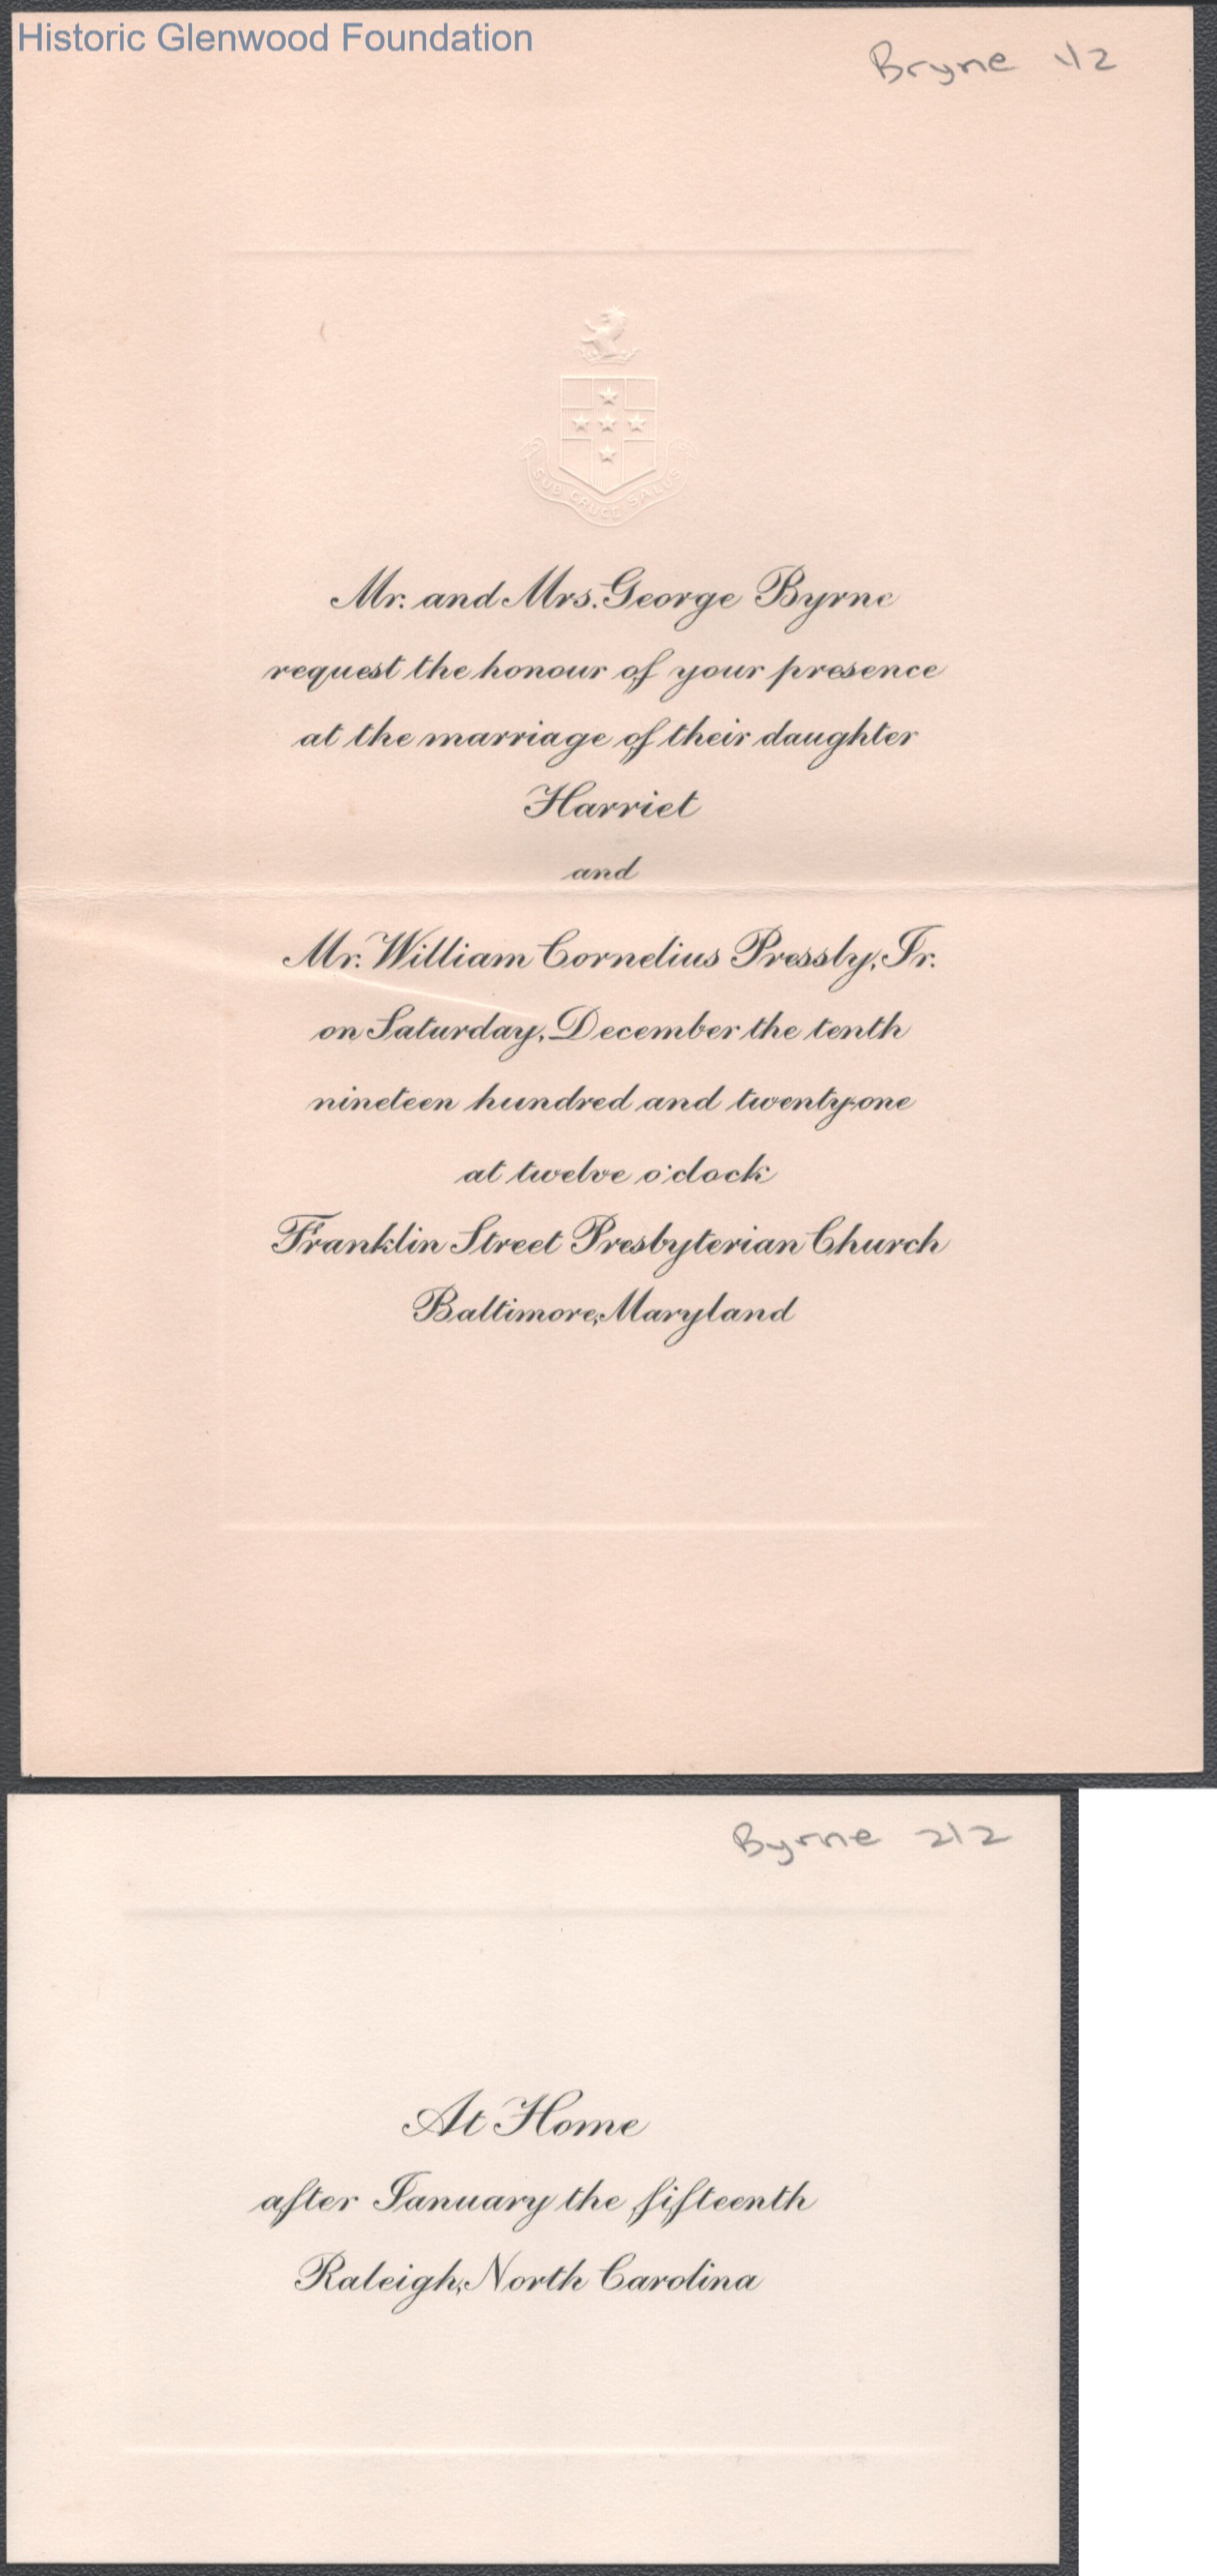 Historic Glenwood Foundation
Bryne 1/2
SUB CRUCE SALUS
Mr. and Mrs. George Byrne
request the honour of your presence
at the marriage of their daughter
Harriet
and
Mr. William Cornelius Pressly, Jr.
on Saturday, December the tenth
nineteen hundred and twenty-one
at twelve o'clock
Franklin Street Presbyterian Church
Baltimore, Maryland
Byrne 2/2
At Home
after January the fifteenth
Raleigh, North Carolina